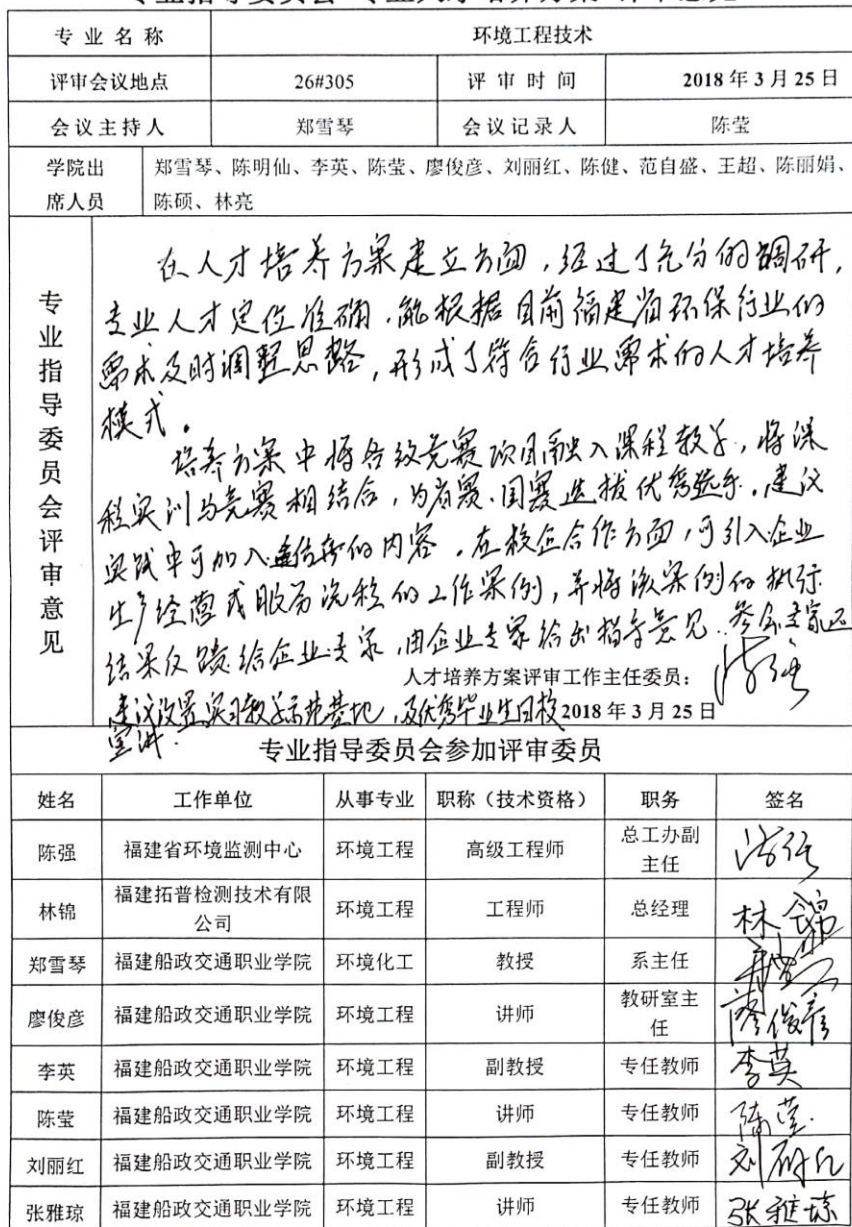 专业名称 环境工程技术
评审会议地点 26#305 评审时间 2018年3月25日
会议主持人 郑雪琴 会议记录人 陈莹
学院出席人员 郑雪琴、陈明仙、李英、陈莹、廖俊彦、刘丽红、陈健、范自盛、王超、陈丽娟、
陈硕、林亮
专业指导委员会评审意见
在人才培养方案建立方面,经过了充分的调研,
专业人才定位准确,能根据目前福建省环保行业的
需求及时调整思路,形成了符合行业需求的人才培养
模式。
培养方案中将各级竞赛项目融入课程教学,将课
程实训与竞赛相结合,为省赛、国赛选拔优秀选手。建议
实践中可加入的内容。在校企合作方面,可引入企业
生产经营或服务流程的工作案例,并将该案例的执行
结果反馈给企业专家,由企业专家给出指导意见。参会专家还
人才培养方案评审工作主任委员: 陈强
建议设置实习教学示范基地,及优秀毕业生回校
2018年3月25日
宣讲.
专业指导委员会参加评审委员
姓名 工作单位 从事专业 职称(技术资格) 职务 签名
陈强 福建省环境监测中心 环境工程 高级工程师 总工办副主任 陈强
林锦 福建拓普检测技术有限公司 环境工程 工程师 总经理 林锦
郑雪琴 福建船政交通职业学院 环境化工 教授 系主任
廖俊彦 福建船政交通职业学院 环境工程 讲师 教研室主任 廖俊彦
李英 福建船政交通职业学院 环境工程 副教授 专任教师 李英
陈莹 福建船政交通职业学院 环境工程 讲师 专任教师 陈莹.
刘丽红 福建船政交通职业学院 环境工程 副教授 专任教师 刘丽红
张雅琼 福建船政交通职业学院 环境工程 讲师 专任教师 张雅琼